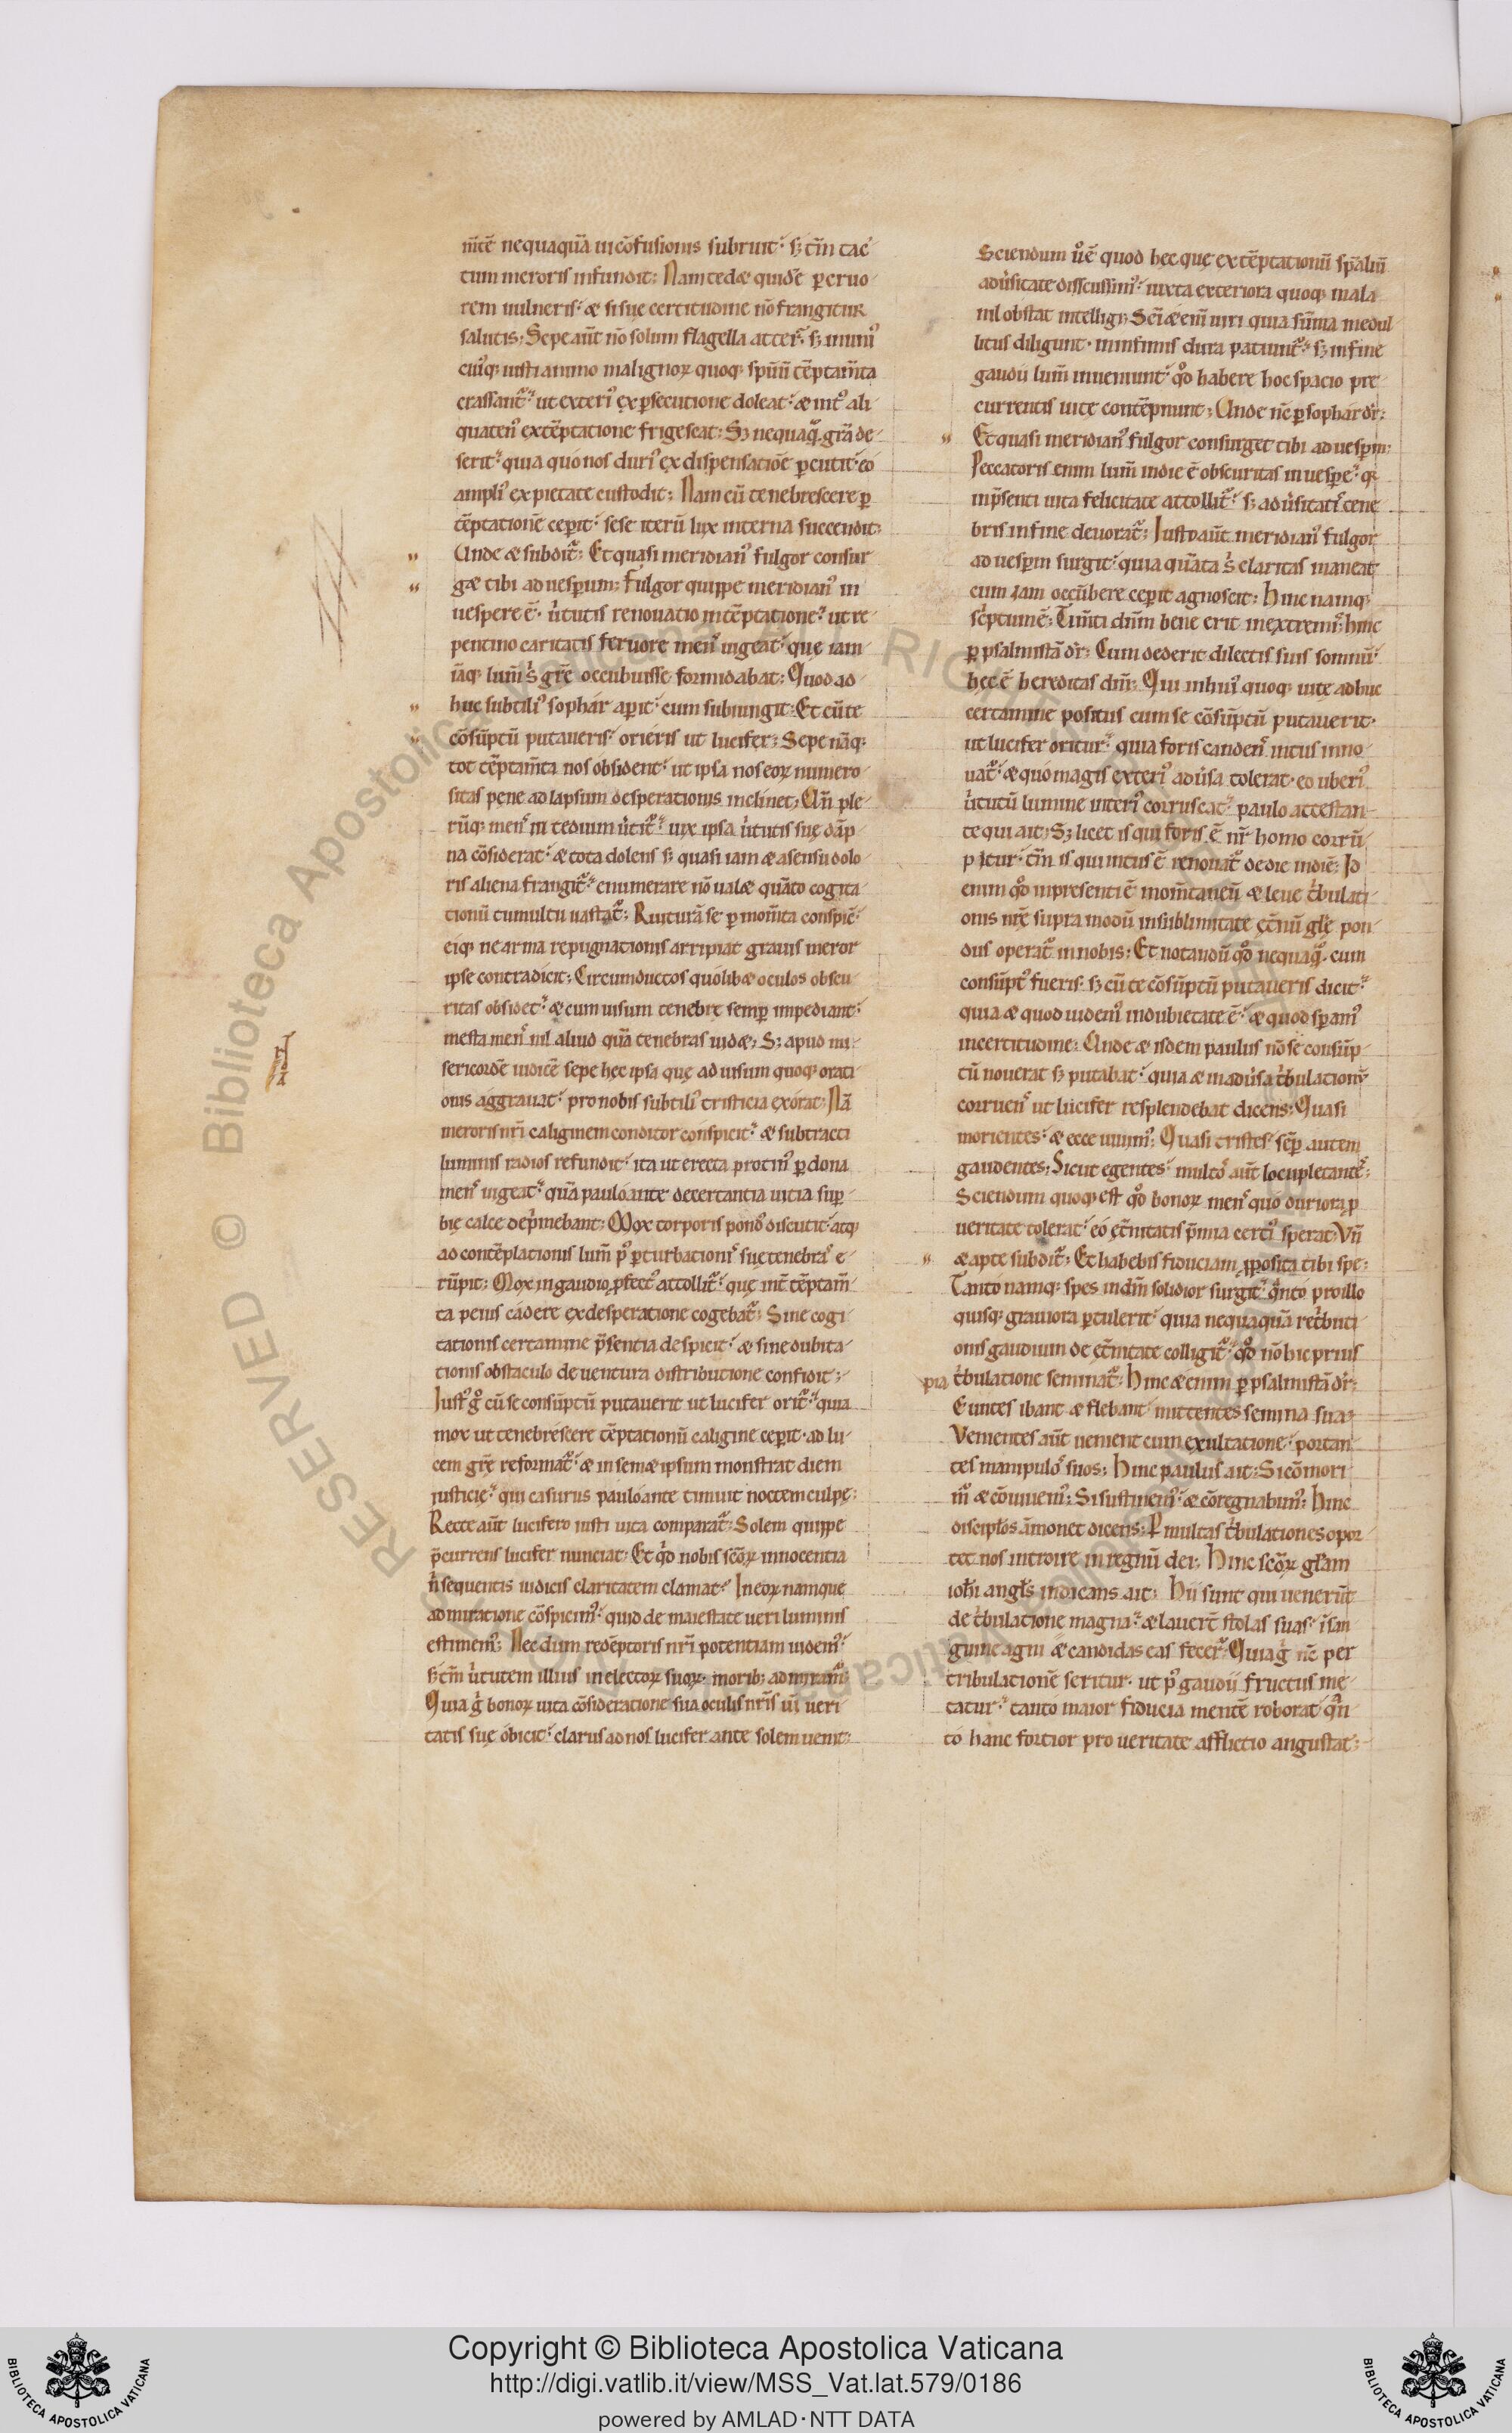 mtē nequaquā in cōfusionis subruit. s; tm̄ tac
tum meroris infundit; Nam tedæ quidē p cruo
rem uulneris. æ si sue certitudine nō frangitur
salutis; Sepe aūt nō solum flagella atter̄. s; inimi
cuiꝰq; iusti animo malignoꝝ quoq; spūū tēptam̄ta
crassant᷑. ut exteriꝰ ex psecutione doleat. æ intꝰ ali
quatenꝰ ex tēptatione frigescat; S; nequaq̃ grā de
serit. quia quo nos duriꝰ ex dispensatiōe pcutit. eo
ampliꝰ ex pietate custodit; Nam cū tenebrescere p
tēptationē ceperit. sese iterū lux interna succendit;
Unde æ subdit᷑; Et quasi meridianꝰ fulgor consur
gæ tibi ad uesperum; Fulgor quippe meridianꝰ in
uespere ē. ùtutis renouatio in tēptatione. ut re
pentino caritatis feruore mens uigeat. quę iam
iāq; lum̄ s' grē occubuisse formidabat; Quod ad
huc subtiliꝰ sophar aperit. cum subiungit; Et cū te
cōsūptū putaueris. orieris ut lucifer; Sepe nāq;
tot tēptam̄ta nos obsident. ut ipsa nos eoꝝ numero
sitas pene ad lapsum desperationis inclinet; Un̄ ple
rūq; mens in tedium ùtit᷑. uix ipsa ùtutis suę dāp
na cōsiderat. æ tota dolens s; quasi iam æ a sensu dolo
ris aliena frangit᷑. enumerare nō ualæ quāto cogita
tionū tumultu uastat᷑; Ruiturā se p mom̄ta conspic̄.
eiq; ne arma repugnationis arripiat grauis meror
ipse contradicit; Circumductos quolibæ oculos obscu
ritas obsidet. æ cum uisum tenebre semp impediant.
mesta mens nil aliud quā tenebras uidæ; S; apud mi
sericordē iudicē sepe hec ipsa quę ad uisum quoq; orati
onis aggrauat. pro nobis subtiliꝰ tristicia exorat; Nā
meroris nr̄i caliginem conditor conspicit. æ subtracti
luminis radios refundit. ita ut erecta protinꝰ p dona
mens uigeat. quā paulo ante decertantia uitia sup
bię calce dep̄mebant; Mox torporis pondꝰ discutit. atq;
ad contēplationis lum̄ pꝰ pturbationis suę tenebras e
rūpit; Mox in gaudio pfectꝰ attollit᷑. quę int̄ tēptam̄
ta peius cadere ex desperatione cogebat᷑; Sine cogi
tationis certamine p̄sentia despicit. æ sine dubita
tionis obstaculo de uentura distributione confidit;
Iustꝰ g° cū se consūptū putauerit ut lucifer orit᷑. quia
mox ut tenebrescere tēptationū caligine ceperit. ad lu
cem grę reformat᷑. æ in semæ ipsum monstrat diem
iusticię. qui casurus paulo ante timuit noctem culpę;
Recte aūt lucifero iusti uita comparat᷑; Solem quippe
p̄currens lucifer nunciat; Et qd nobis scōꝝ innocentia
n̄ sequentis iudicis claritatem clamat. In eoꝝ namque
admiratione cōspicimꝰ. quid de maiestate ueri luminis
estimemꝰ; Nec dum redēptoris nr̄i potentiam uidemꝰ.
s; tm̄ ùtutem illius in electoꝝ suoꝝ moribꝰ admiramur;
Quia g' bonoꝝ uita cōsideratione sua oculis nr̄is uī ueri
tatis suę obicit. clarus ad nos lucifer ante solem uenit;
Sciendum ùo ē quod hęc quę ex tēptationū spāliū
adùsitate disscussimꝰ. iuxta exteriora quoq; mala
nil obstat intelligi; Scī æenī uiri quia sūma medul
litus diligunt. in infimis dura patiunt᷑. s; in fine
gaudii lum̄ inueniunt. qd habere hoc spacio pre
currentis uite contēpnunt; Unde nc̄ p sophar dr̄;
Et quasi meridianꝰ fulgor consurget tibi ad uespm;
Peccatoris enim lum̄ in die ē obscuritas in uespe. q
in p̄senti uita felicitate attollit᷑. s; adùsitatis tene
bris in fine deuorat᷑; Iusto aūt meridianꝰ fulgor
ad uespm surgit. quia quāta s' claritas maneat
cum iam occūbere ceperit agnoscit; Hinc namq;
sc'ptum ē; Tim̄ti dm̄ bene erit in extremis; hinc
p psalmistā dr̄; Cum dederit dilectis suis somnū.
hęc ē hereditas dm̄; Qui in huiꝰ quoq; uite adhuc
certamine positus cum se cōsūptū putauerit.
ut lucifer oritur. quia foris candens intus inno
uat᷑. æ quo magis exteriꝰ adùsa tolerat. eo uberiꝰ
ùtutū lumine interiꝰ corruscat. paulo attestan
te qui ait; S; licet is qui foris ē nr̄ homo corrū
pitur. tm̄ is qui intus ē renouat᷑ de die in diē; Id
enim qd in presenti ē mom̄taneū æ leue t'bulati
onis nrę supra modū in sublimitate ęt̄nū glę pon
dus operat᷑ in nobis; Et notandū qd nequaq̃. cum
consūptꝰ fueris. s; cū te cōsūptū putaueris dicit᷑.
quia æ quod uidemꝰ in dubietate ē. æ quod speramꝰ
in certitudine; Unde æ isdem paulus nō se consūp
tū nouerat s; putabat. quia æ in adùsa t'bulationū
corruens ut lucifer resplendebat dicens; Quasi
morientes. æ ecce uiuimꝰ; Quasi tristes. semp autem
gaudentes; Sicut egentes. multos aūt locupletantes;
Sciendum quoq; est qd bonoꝝ mens quo duriora p
ueritate tolerat. eo ęt̄nitatis p̄mia certiꝰ sperat; Un̄
æ apte subdit᷑; Et habebis fiduciam pposita tibi spe;
Tanto namq; spes in dm̄ solidior surgit. q̄nto pro illo
quisq; grauiora ptulerit. quia nequaquā ret'buti
onis gaudium de ęt̄nitate colligit᷑. qd nō hic prius
pia t'bulatione seminat᷑; Hinc æenim p psalmistā dr̄;
Euntes ibant æ flebant mittentes semina sua;
Venientes aūt uenient cum exultatione. portan
tes manipulos suos; Hinc paulus ait; Si cōmori
mur æ cōuiuemꝰ; Si sustinemꝰ. æ cōregnabimꝰ; hinc
discipłos āmonet dicens; P multas t'bulationes opor
tet nos introire in regnū dei; Hinc scōꝝ głam
iohi angłs indicans ait; Hii sunt qui uenerūt
de t'bulatione magna. æ lauer̄t stolas suas. ī san
guine agni æ candidas eas fecer̄; Quia g' nc̄ per
tribulationē seritur. ut pꝰ gaudii fructus me
tatur. tanto maior fiducia mentē roborat q̄n
to hanc fortior pro ueritate afflictio angustat;
Copyright © Biblioteca Apostolica Vaticana
http://digi.vatlib.it/view/MSS_Vat.lat.579/0186
powered by AMLAD·NTT DATA